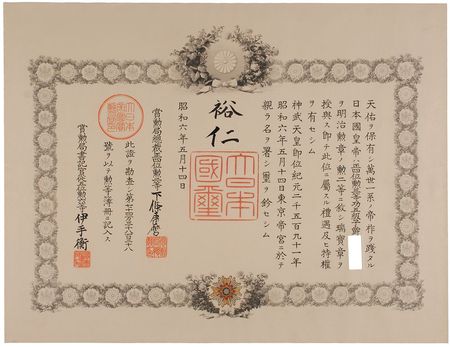 天佑ヲ保有シ萬世一系ノ帝祚ヲ踐タル
日本國皇帝ハ正四位勳三等功五級子爵
ヲ明治勳章ノ勳二等ニ敍シ瑞寶章ヲ
授與ス即チ此位ニ屬スル禮遇及ヒ特權
ヲ有セシム
神武天皇即位紀元二千五百九十一年
昭和六年五月十四日東京帝宮ニ於テ
親ラ名ヲ署シ璽ヲ鈐セシム
裕仁
大日本國璽
昭和六年五月十四日
賞勳局總裁正四位勳二等下條康麿
此證ヲ勘査シ
號ヲ以テ勳二等簿册ニ記入ス
賞勳局書記官